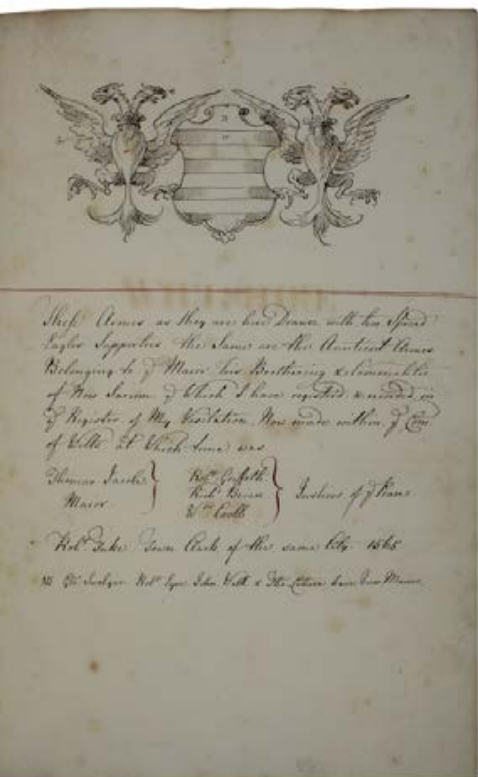 These Armes as they are here Drawne with two Spread
Eagles Supporters the Same are the Auntient Armes
Belonging to yͤ Maior his Brethering & Comunaltie
of New Sarum yͤ Which I have regestred & recorded in
yͤ Register of My Visitation Now made within yͤ Com.
of Wilts at Which time was
Thomas
Maior
Robᵗ Griffeth
Richᵈ
Wᵐ
Justices of yͤ Peace
Robᵗ Town Clark of the same City 1565
Robᵗ Eyre John Webb & have been Maiors